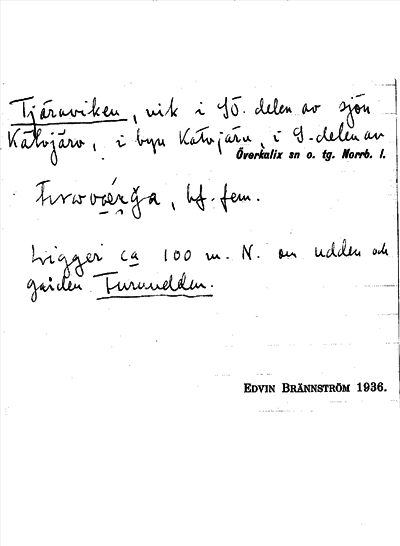 Tjäruviken, vik i SÖ. delen av sjön
Kätvjärv, i byn Kätvjärv, i S-delen av
Överkalix sn o. tg. Norrb. l.
, bf. fem.
Ligger ca 100 m. N. om udden och
gården Furuudden.
EDVIN BRÄNNSTRÖM 1936.